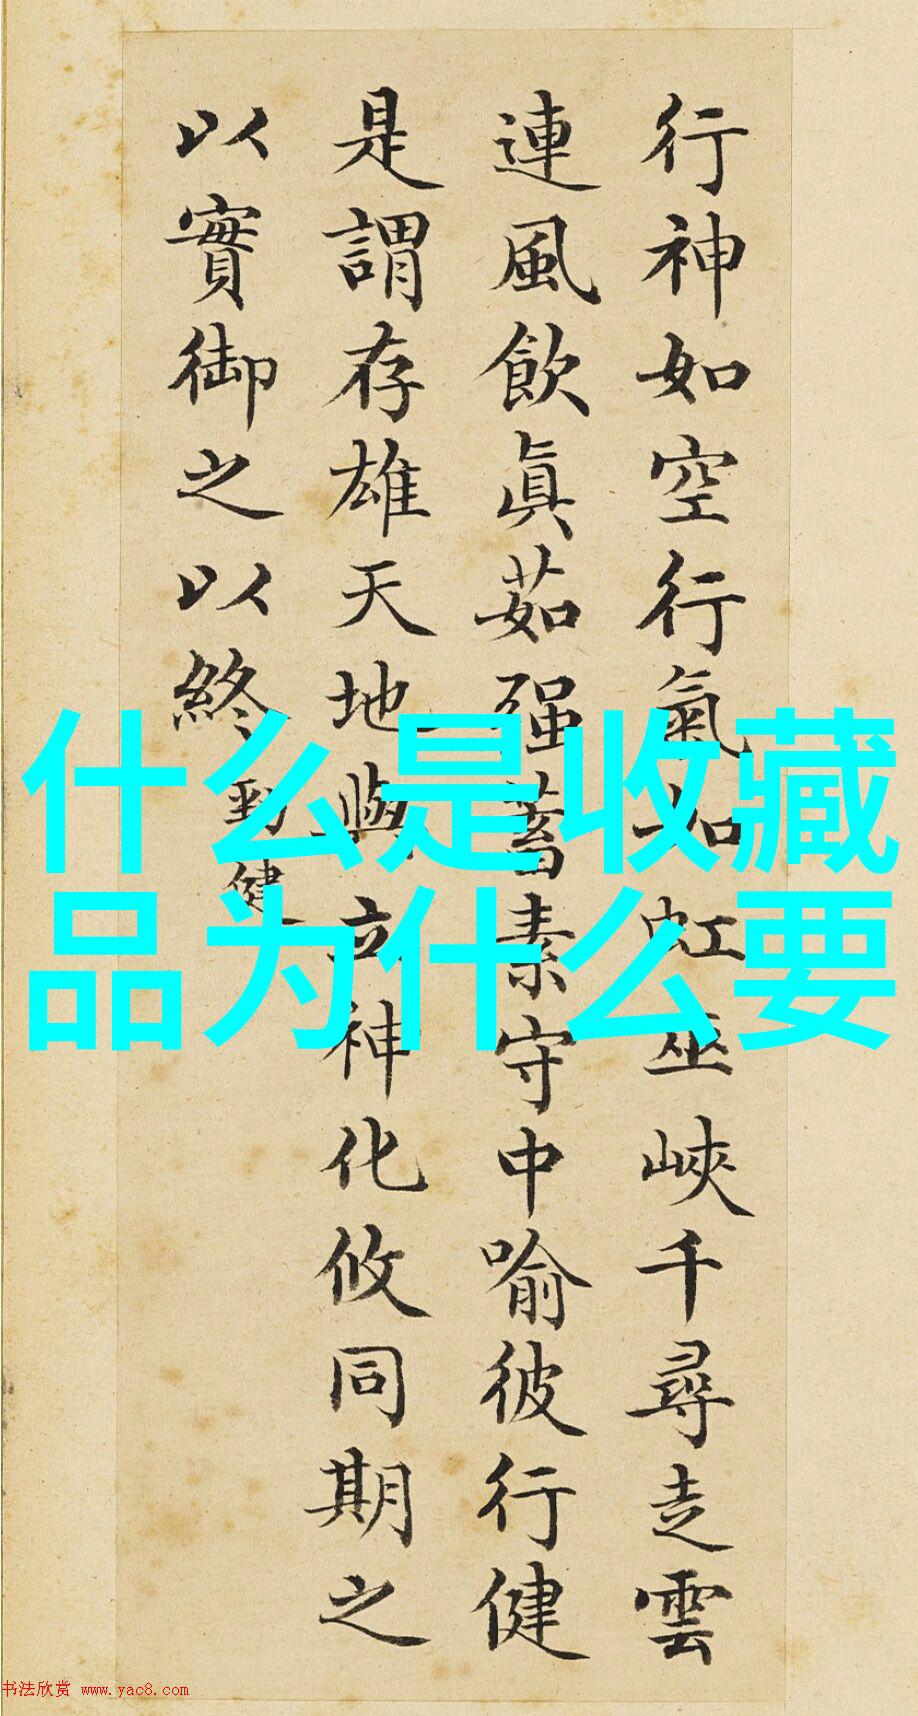 行神如空行氣如虹巫峽千尋走雲
連風飲眞茹强蓄素守中喻彼行健
是謂存雄天地與立神化攸同期之
以實御之以終
勁健
什么是收藏
品为什么要
书法欣赏 www.yac8.com